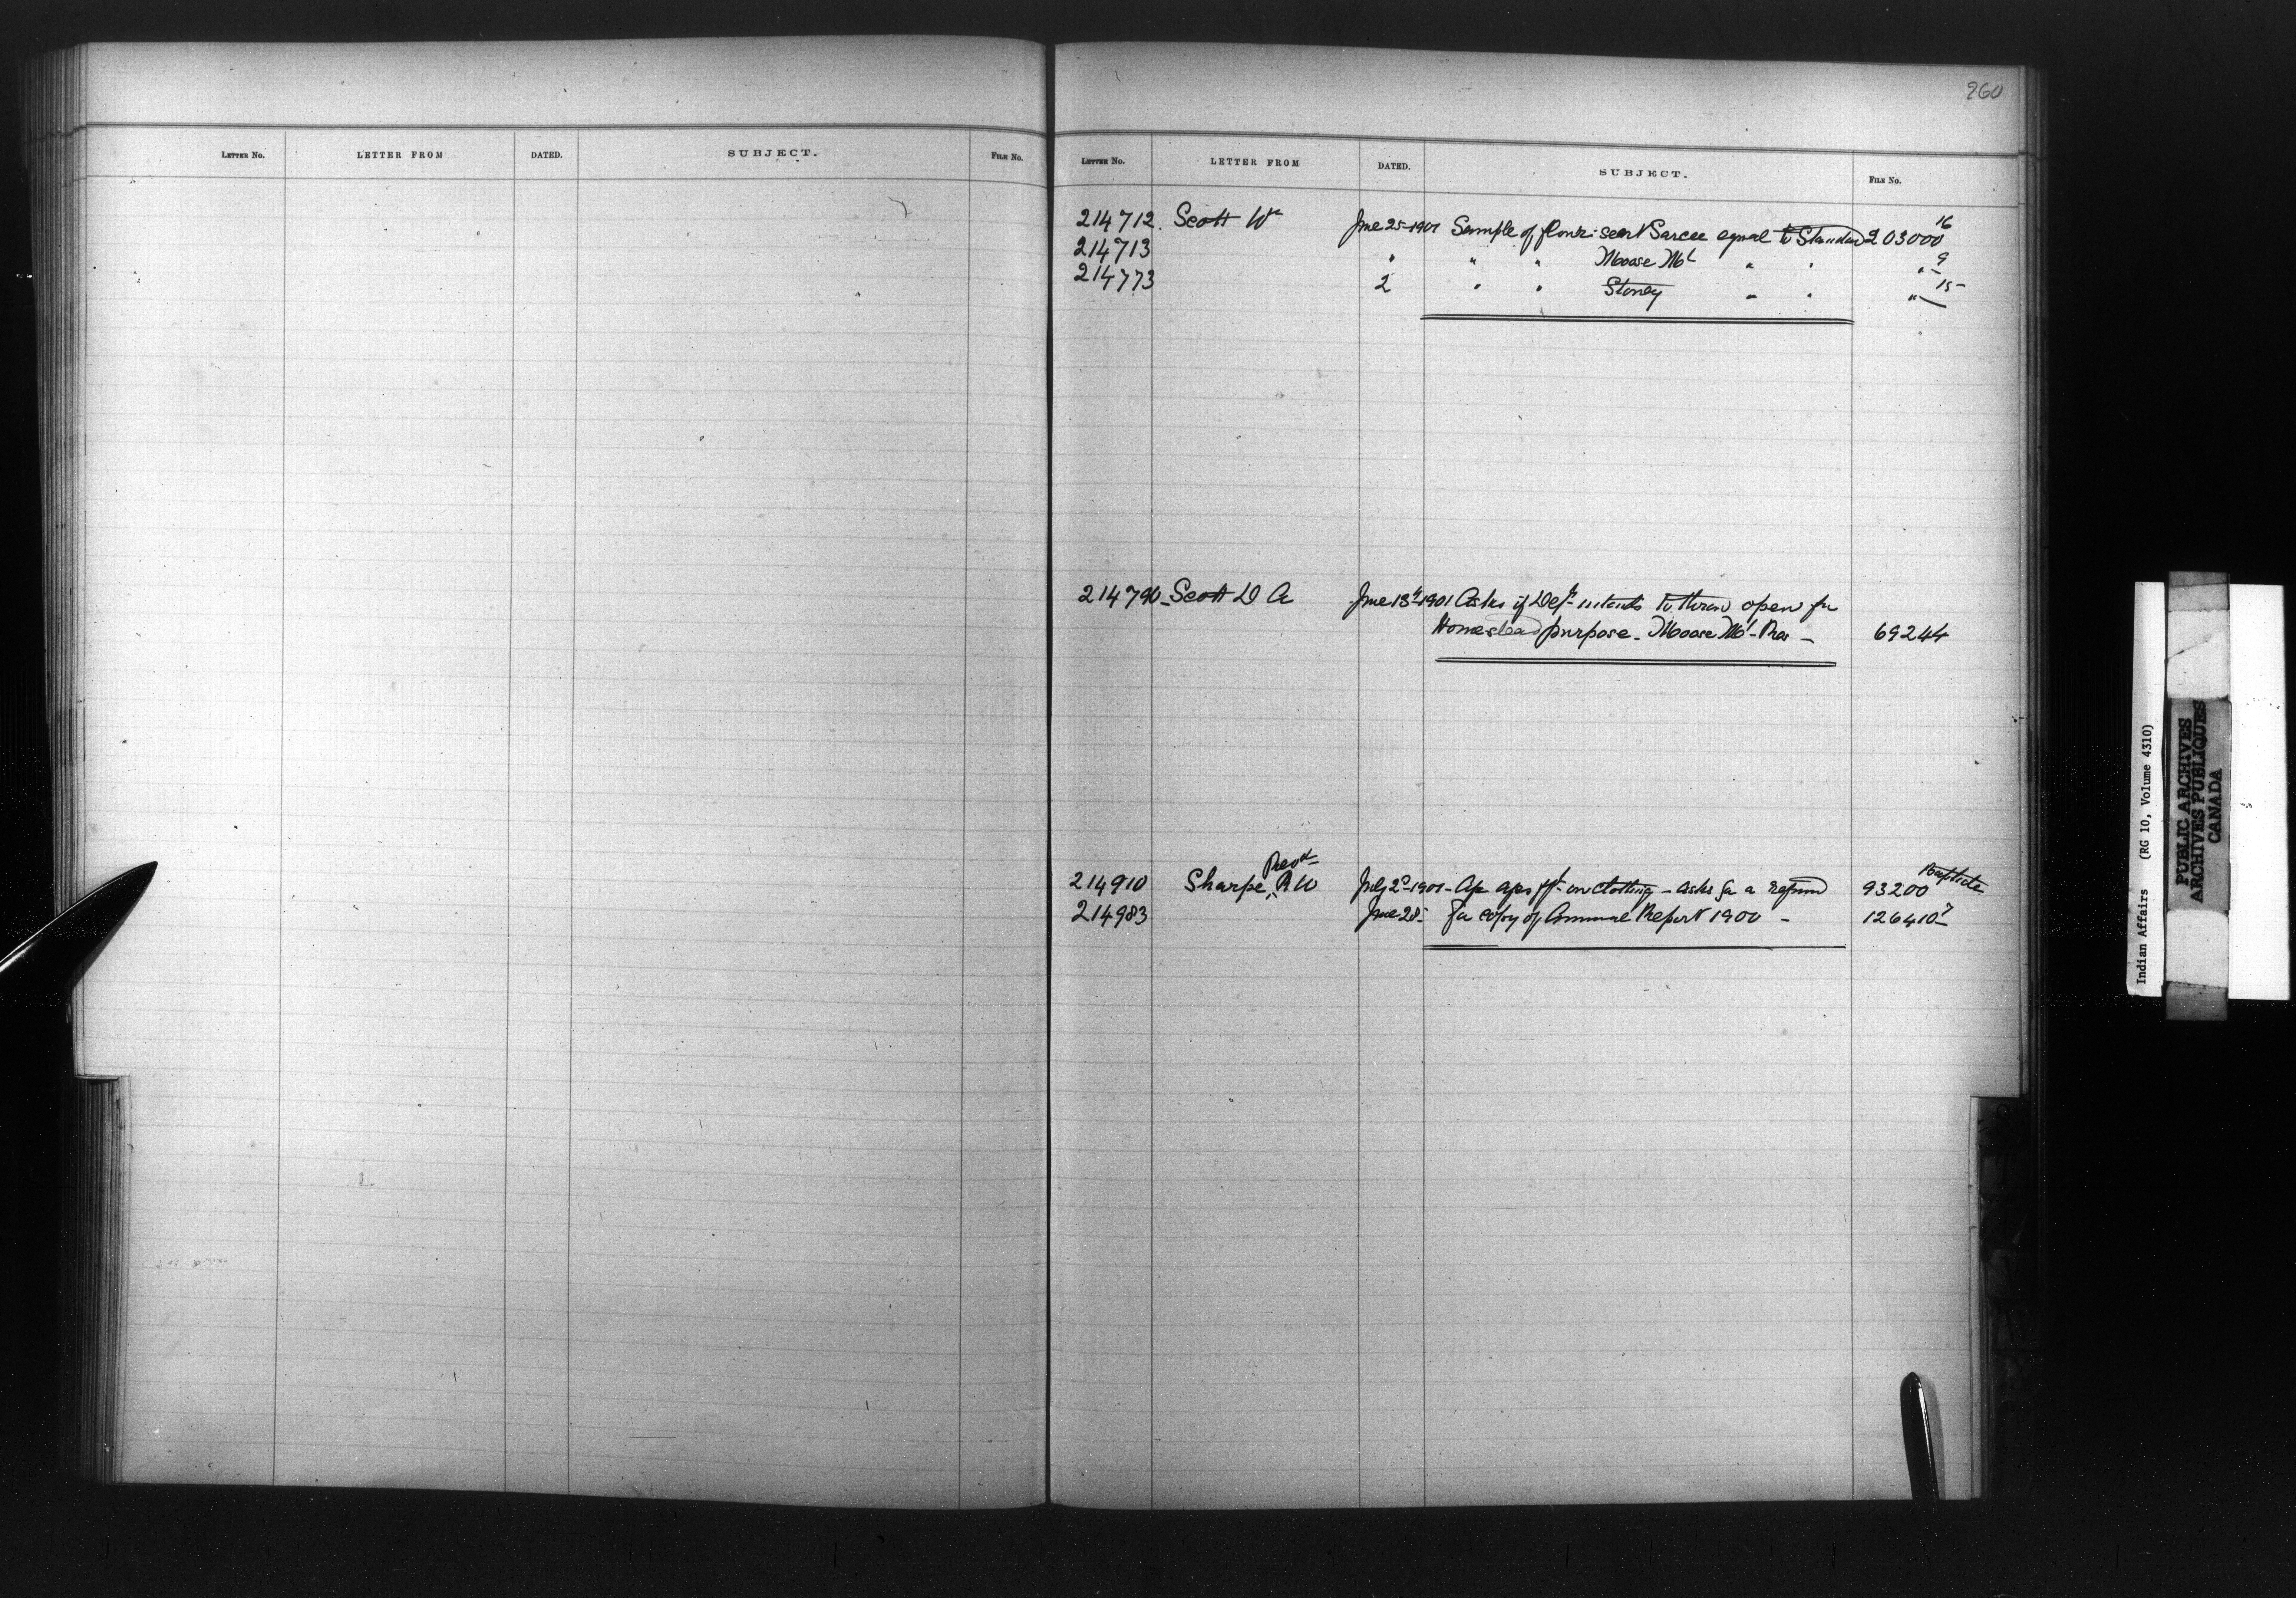 260
LETTER NO. LETTER FROM DATED. SUBJECT. FILE NO.
LETTER NO. LETTER FROM DATED. SUBJECT. FILE NO.
214712. Scott Wm June 25-1901 Sample of flour sent Sarcee equal to Standard 203000 16
214713 " " " Moose Mt " " " 9
214773 2 " " Stoney " " " 15
214790 - Scott D A June 13th 1901 Asks if Dept intends to throw open for
Homestead purpose - Moose Mt - Res - 69244
214910 Sharpe, Revd R W July 2d-1901 - on clothing - asks for a refund 93200
214983 June 28 - for copy of Annual Report 1900 - 126410 7
Indian Affairs (RG 10, Volume 4310)
PUBLIC ARCHIVES
ARCHIVES PUBLIQUES
CANADA